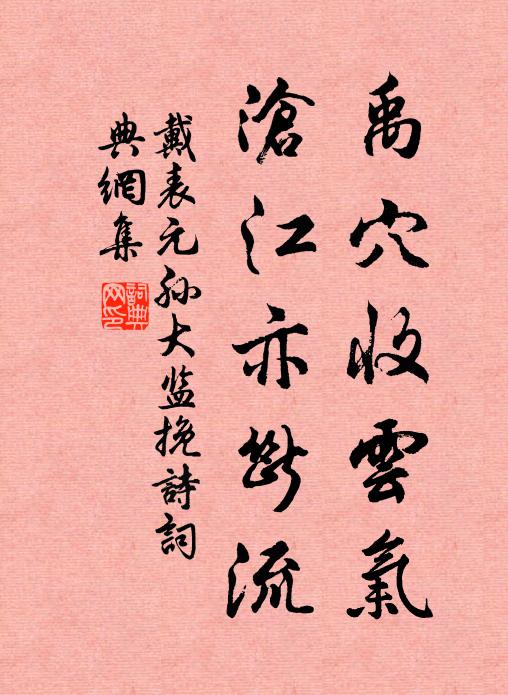 禹穴收雲氣
滄江亦斷流
戴表元孫大监挽詩詞
典網集
詞典网印